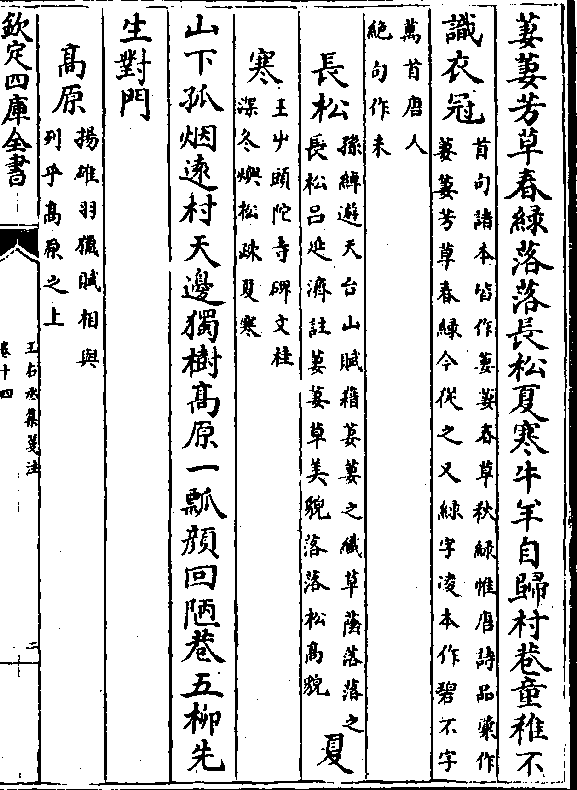 萋萋芳草春緑落落長松夏寒牛羊自歸村巷童稚不
識衣冠
首句諸本皆作萋萋春草秋緑惟唐詩品彚作
萋萋芳草春緑今從之又緑字凌本作碧不字
萬首唐人
絶句作未
長松
孫綽遊天台山賦藉萋萋之纖草蔭落落之
長松吕延濟註萋萋草美貌落落松高貌
夏
寒
王屮頭陀寺碑文桂
深冬燠松疎夏寒
山下孤烟逺村天邊獨樹髙原一瓢顔回陋巷五柳先
生對門
髙原
揚雄羽獵賦相與
列乎髙原之上
欽定四庫全書
王右丞集箋注
卷十四
二